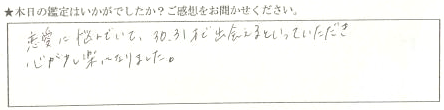 ★本日の鑑定はいかがでしたか？ご感想をお聞かせください。
恋愛に悩んでいて、30.31才で出会えるといっていただき
心が少し楽になりました。